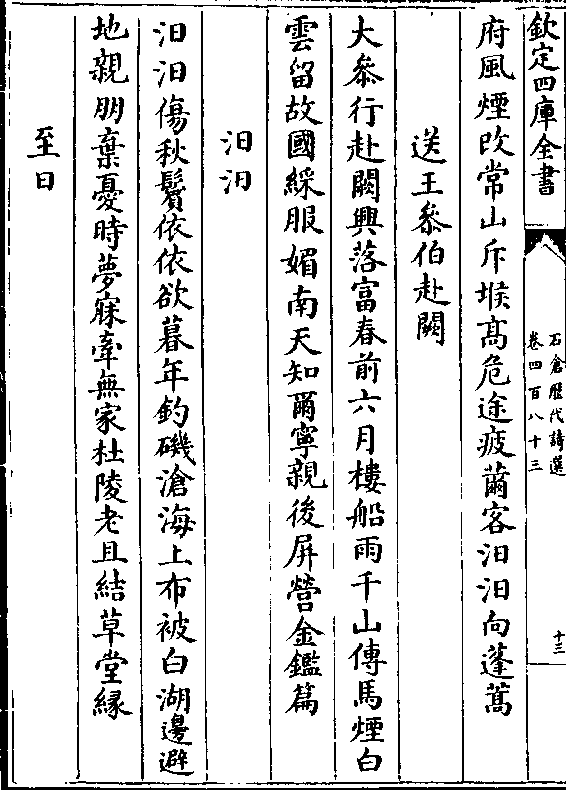 欽定四庫全書
石倉歷代詩選
卷四百八十三
十三
府風煙改常山斥堠髙危途疲薾客汨汨向蓬蒿
送王叅伯赴闕
大叅行赴闕興落富春前六月樓船雨千山傳馬煙白
雲留故國綵服媚南天知爾寧親後屏營金鑑篇
汨汨
汨汨傷秋鬢依依欲暮年釣磯滄海上布被白湖邊避
地親朋棄憂時夢寐牽無家杜陵老且結草堂縁
至日